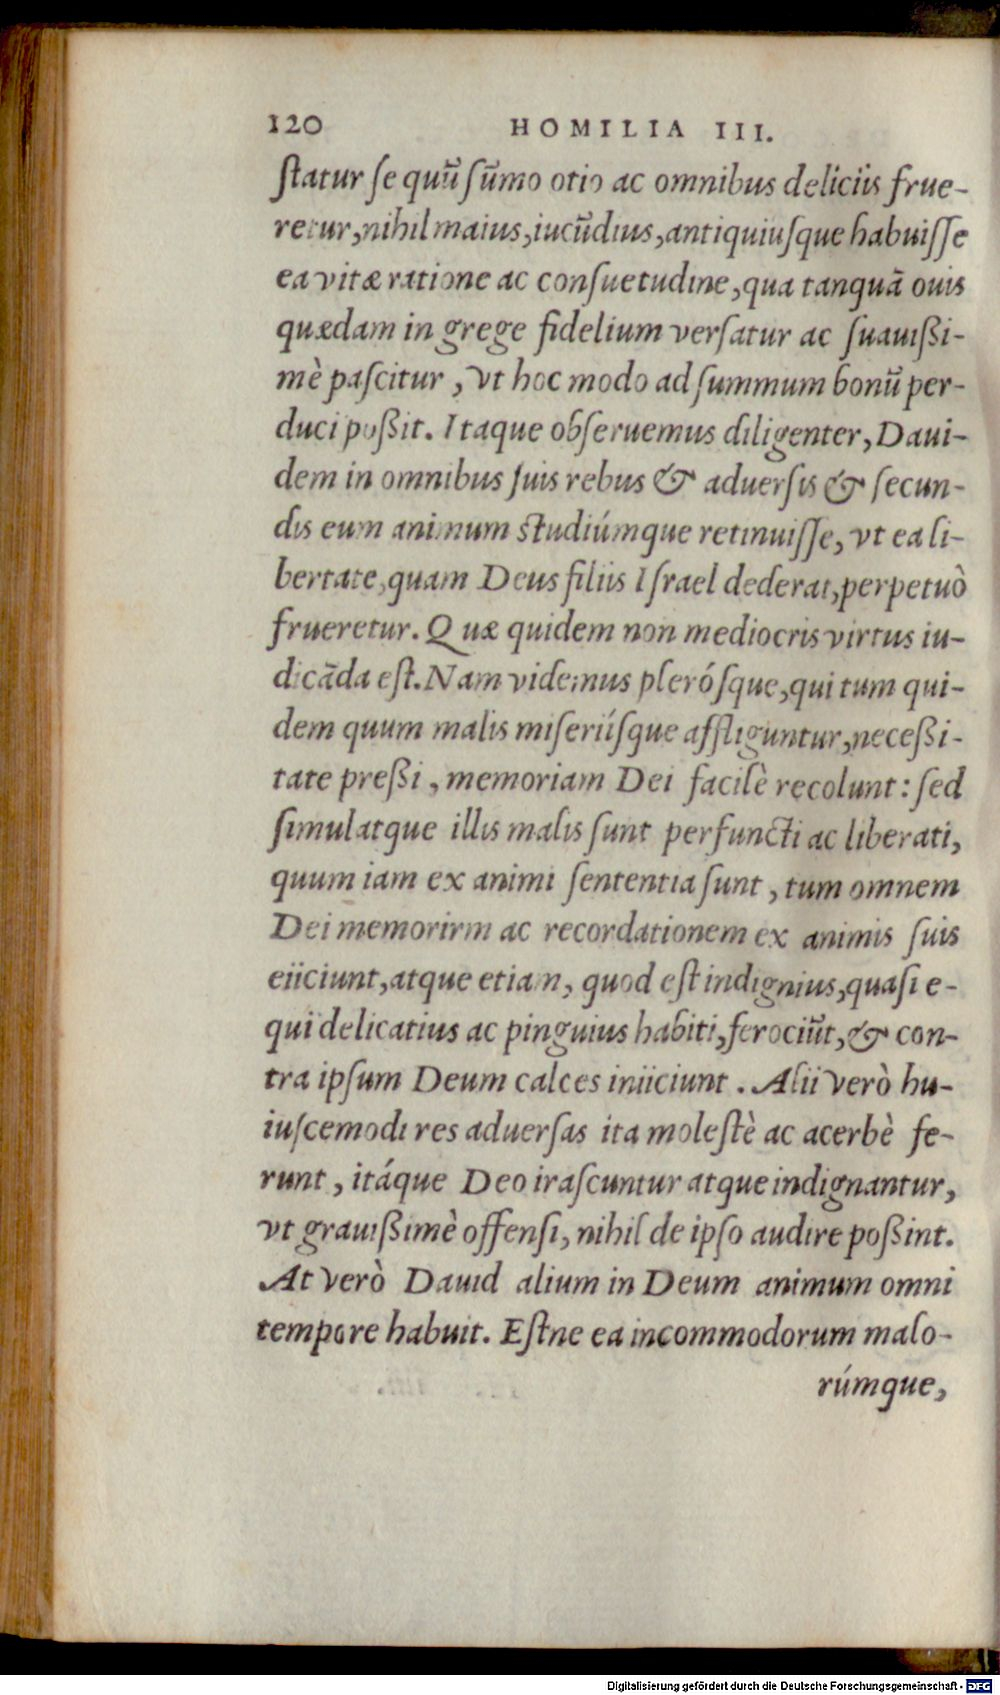 120 HOMILIA III.
ſtatur ſe quũ ſũmo otio ac omnibus deliciis frue-
retur, nihil maius, iucũdius, antiquiuſque habuiſſe
ea vitæ ratione ac conſuetudine, qua tanquã ouis
quædam in grege fidelium verſatur ac ſuauißi-
mè paſcitur, vt hoc modo ad ſummum bonũ per-
duci poßit. Itaque obſeruemus diligenter, Daui-
dem in omnibus ſuis rebus & aduerſis & ſecun-
dis eum animum ſtudiúmque retinuiſſe, vt ea li-
bertate, quam Deus filiis Iſrael dederat, perpetuò
frueretur. Quæ quidem non mediocris virtus iu-
dicãda eſt. Nam videmus pleróſque, qui tum qui-
dem quum malis miſeriíſque affliguntur, neceßi-
tate preßi, memoriam Dei facilè recolunt: ſed
ſimulatque illis malis ſunt perfuncti ac liberati,
quum iam ex animi ſententia ſunt, tum omnem
Dei memorirm ac recordationem ex animis ſuis
eiiciunt, atque etiam, quod eſt indignius, quaſi e-
qui delicatius ac pinguius habiti, ferociũt, & con-
tra ipſum Deum calces iniiciunt. Alii verò hu-
iuſcemodi res aduerſas ita moleſtè ac acerbè fe-
runt, itáque Deo iraſcuntur atque indignantur,
vt grauißimè offenſi, nihil de ipſo audire poßint.
At verò Dauid alium in Deum animum omni
tempore habuit. Eſtne ea incommodorum malo-
rúmque,
Digitalisierung gefördert durch die Deutsche Forschungsgemeinschaft - DFG